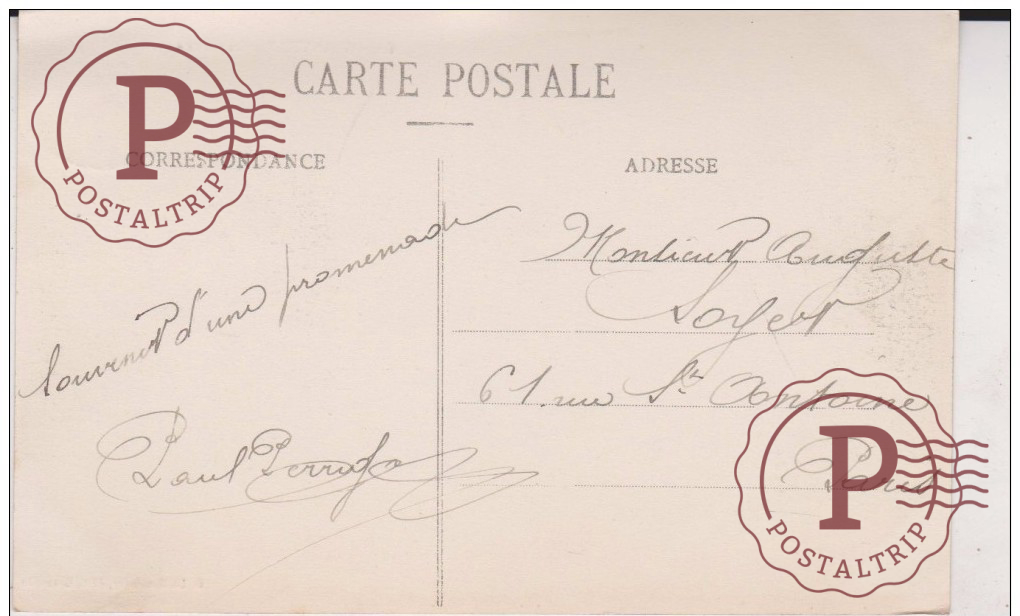 CARTE POSTALE
CORRESPONDANCE
ADRESSE
Souvenir d'une promenade
Paul
Monsieur Auguste
61. rue St Antoine
Paris
P
POSTALTRIP
P
POSTALTRIP